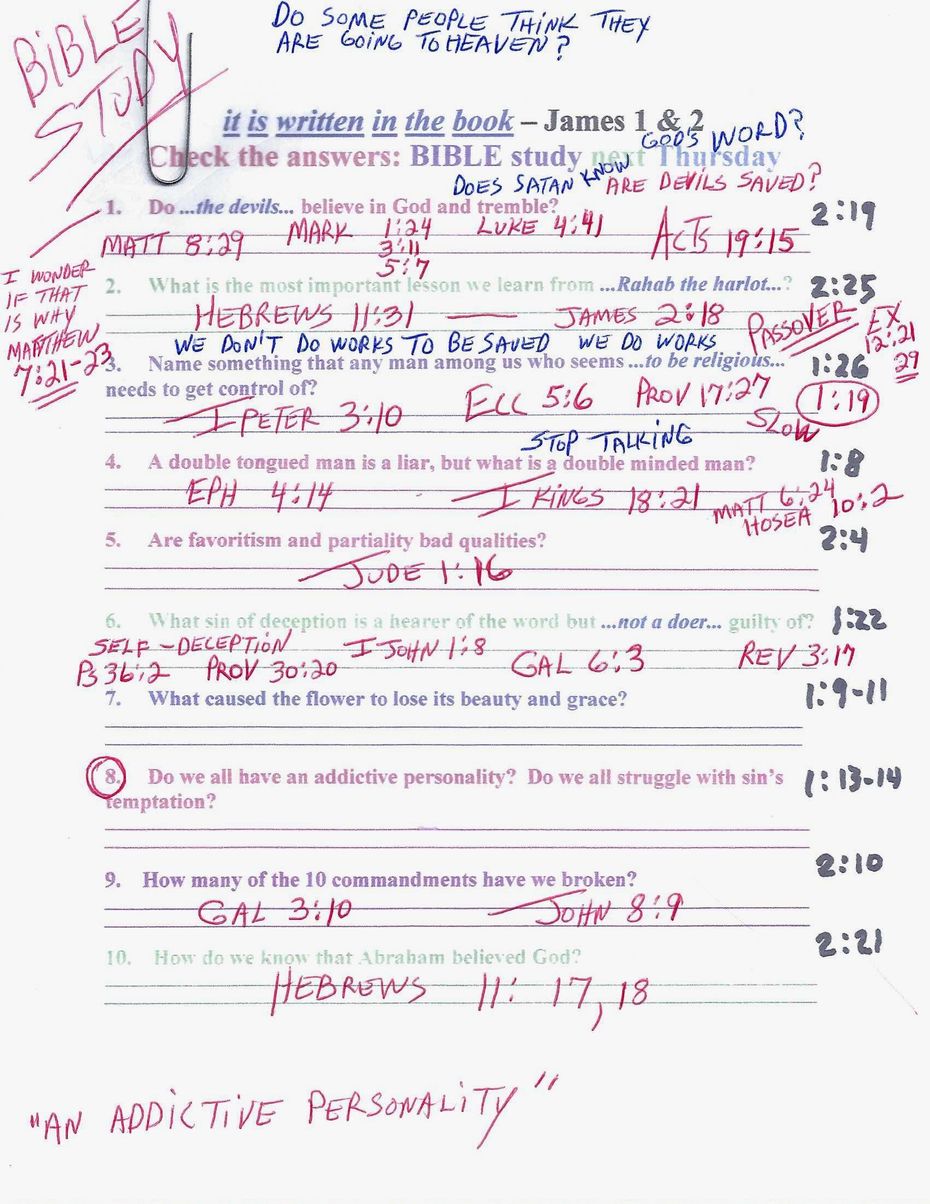 BIBLE
STUDY
DO SOME PEOPLE THINK THEY
ARE GOING TO HEAVEN?
it is written in the book – James 1 & 2
GOD'S WORD?
Check the answers: BIBLE study next Thursday
DOES SATAN KNOW ARE DEVILS SAVED?
1. Do ...the devils... believe in God and tremble? 2:19
MATT 8:29 MARK 1:24 LUKE 4:41 ACTS 19:15
3:11
5:7
I WONDER
IF THAT
IS WHY
MATTHEW
7:21-23
2. What is the most important lesson we learn from ...Rahab the harlot...? 2:25
HEBREWS 11:31 — JAMES 2:18 PASSOVER EX
12:21
29
WE DON'T DO WORKS TO BE SAVED WE DO WORKS
3. Name something that any man among us who seems ...to be religious... 1:26
needs to get control of?
I PETER 3:10 ECC 5:6 PROV 17:27 1:19
SLOW
STOP TALKING
4. A double tongued man is a liar, but what is a double minded man? 1:8
EPH 4:14 I KINGS 18:21 MATT 6:24
HOSEA 10:2
5. Are favoritism and partiality bad qualities? 2:4
JUDE 1:16
6. What sin of deception is a hearer of the word but ...not a doer... guilty of? 1:22
SELF-DECEPTION I JOHN 1:8 GAL 6:3 REV 3:17
PS 36:2 PROV 30:20
7. What caused the flower to lose its beauty and grace? 1:9-11
8. Do we all have an addictive personality? Do we all struggle with sin's 1:13-14
temptation?
9. How many of the 10 commandments have we broken? 2:10
GAL 3:10 JOHN 8:9
10. How do we know that Abraham believed God? 2:21
HEBREWS 11: 17, 18
"AN ADDICTIVE PERSONALITY"